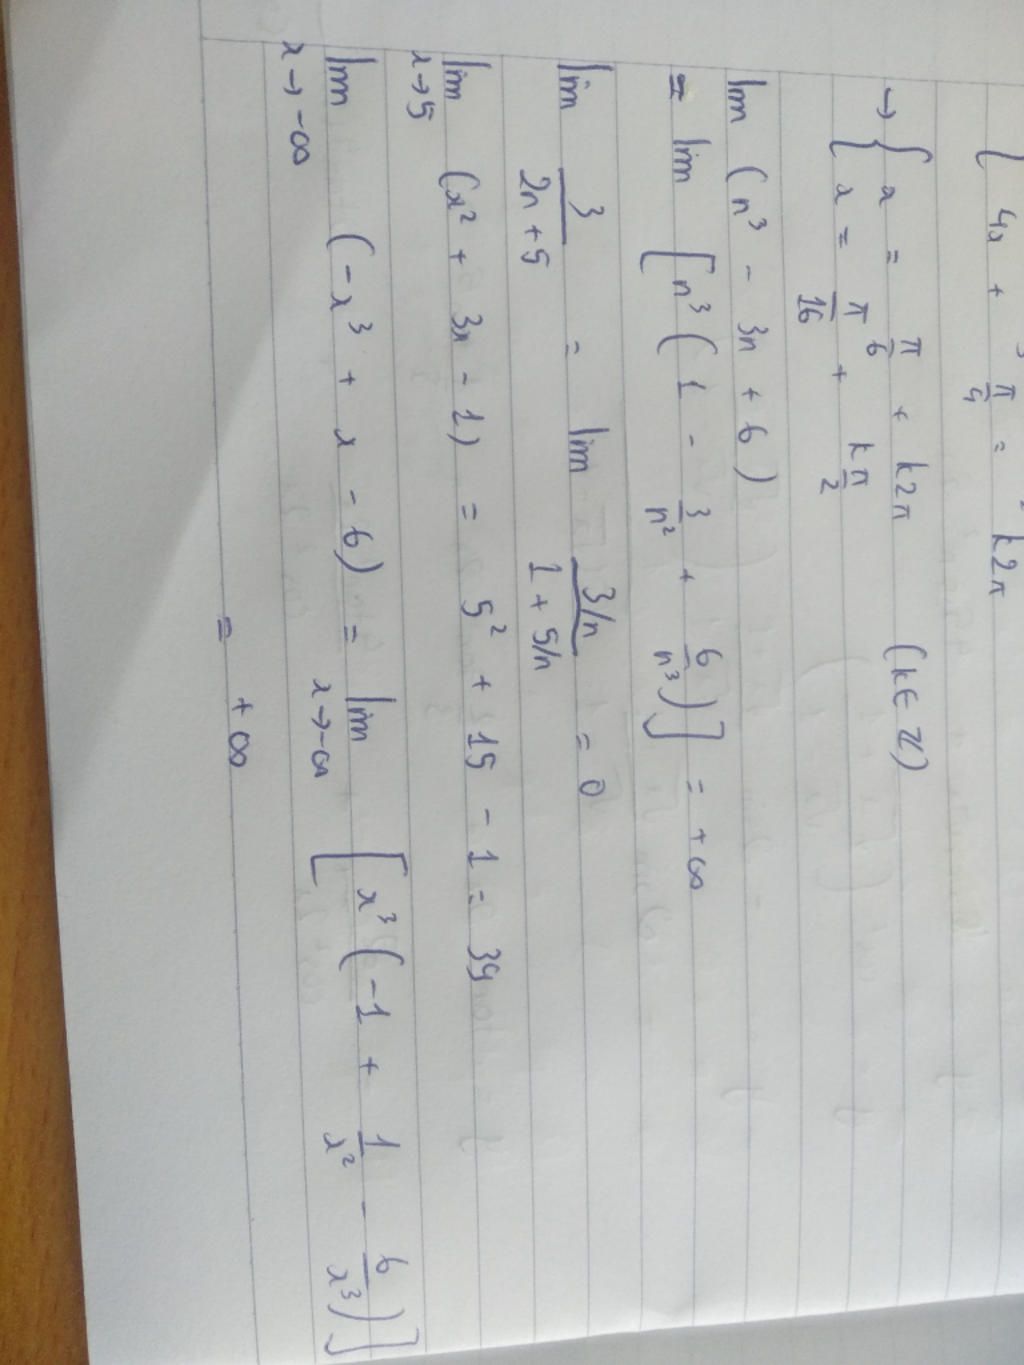 4x + π/4 = k2π
→ { x = π/6 + k2π (k∈Z)
{ x = π/16 + kπ/2
lim (n³ - 3n + 6)
= lim [n³(1 - 3/n² + 6/n³)] = +∞
lim 3/(2n+5) = lim (3/n)/(1 + 5/n) = 0
lim x→5 (x² + 3x - 1) = 5² + 15 - 1 = 39
lim x→-∞ (-x³ + x - 6) = lim x→-∞ [x³(-1 + 1/x² - 6/x³)]
= +∞